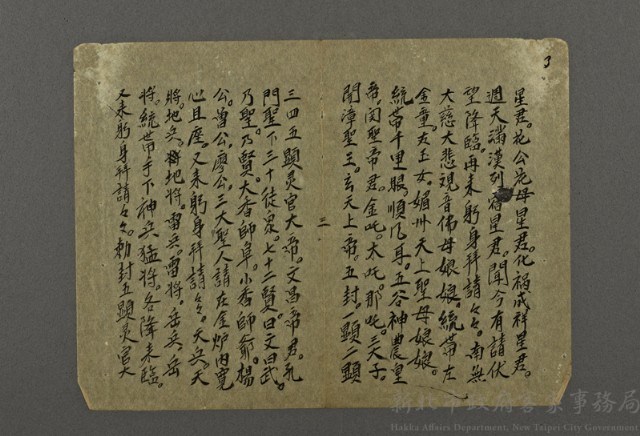 3
星君。花公花母星君。化禍成祥星君。
週天滿漢列宿星君。聞今有請伏
望降臨。再來躬身拜請々々。南無
大慈大悲观音佛母娘娘。統帶左
金童右玉女。媚州天上聖母娘娘。
統帶千里眼。順风耳。五谷神農皇
帝。関聖帝君。金吒。木吒。那吒。三天子。
開漳聖王。玄天上帝。五封。一顕二顕
三
三四五顕灵官大帝。文昌帝君。孔
門聖下三十徒眾。七十二賢。曰文曰武。
乃聖乃賢。大香師阜。小香師爺。楊
公。曾公。廖公。三大聖人請在金炉内寬
心且座。又来躬身拜請々々。天兵天
將。地兵地將。雷兵雷將。岳兵岳
將。統帶手下神兵猛將。各降来臨。
又来躬身拜請々々。勅封五顕灵官大
新北市政府客家事務局
Hakka Affairs Department, New Taipei City Government